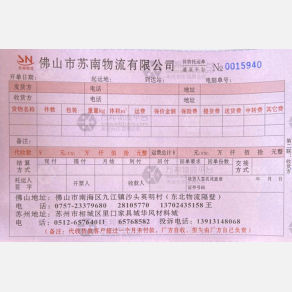 SN 佛山市苏南物流有限公司 №0015940
开单日期: 起运地: 到达站: 电脑单号:
发货方 电话 地址
收货方 电话 地址
货物名称 件数 包装 重量kg 体积m³ 运费 保价金额 保价费 接货费 送货费 中转费 其它费
备注:
代收款 万 仟 佰 拾 元整 运费总计 万 仟 佰 拾 元整
结算方式 现付 到付 月结 回付 交接方式
托运人签字 开票人 收款人
佛山地址: 佛山市南海区九江镇沙头英明村(东北物流隔壁)
电 话: 0757-23379680 28105770 13702435158 王
苏州地址: 苏州市相城区里口家具城华风材料城
电 话: 0512-65764011 65768582 投诉电话: 13913148068
注意: 代收转款客户超过一个月未付款,厂方自收,损失由厂方自己负责)